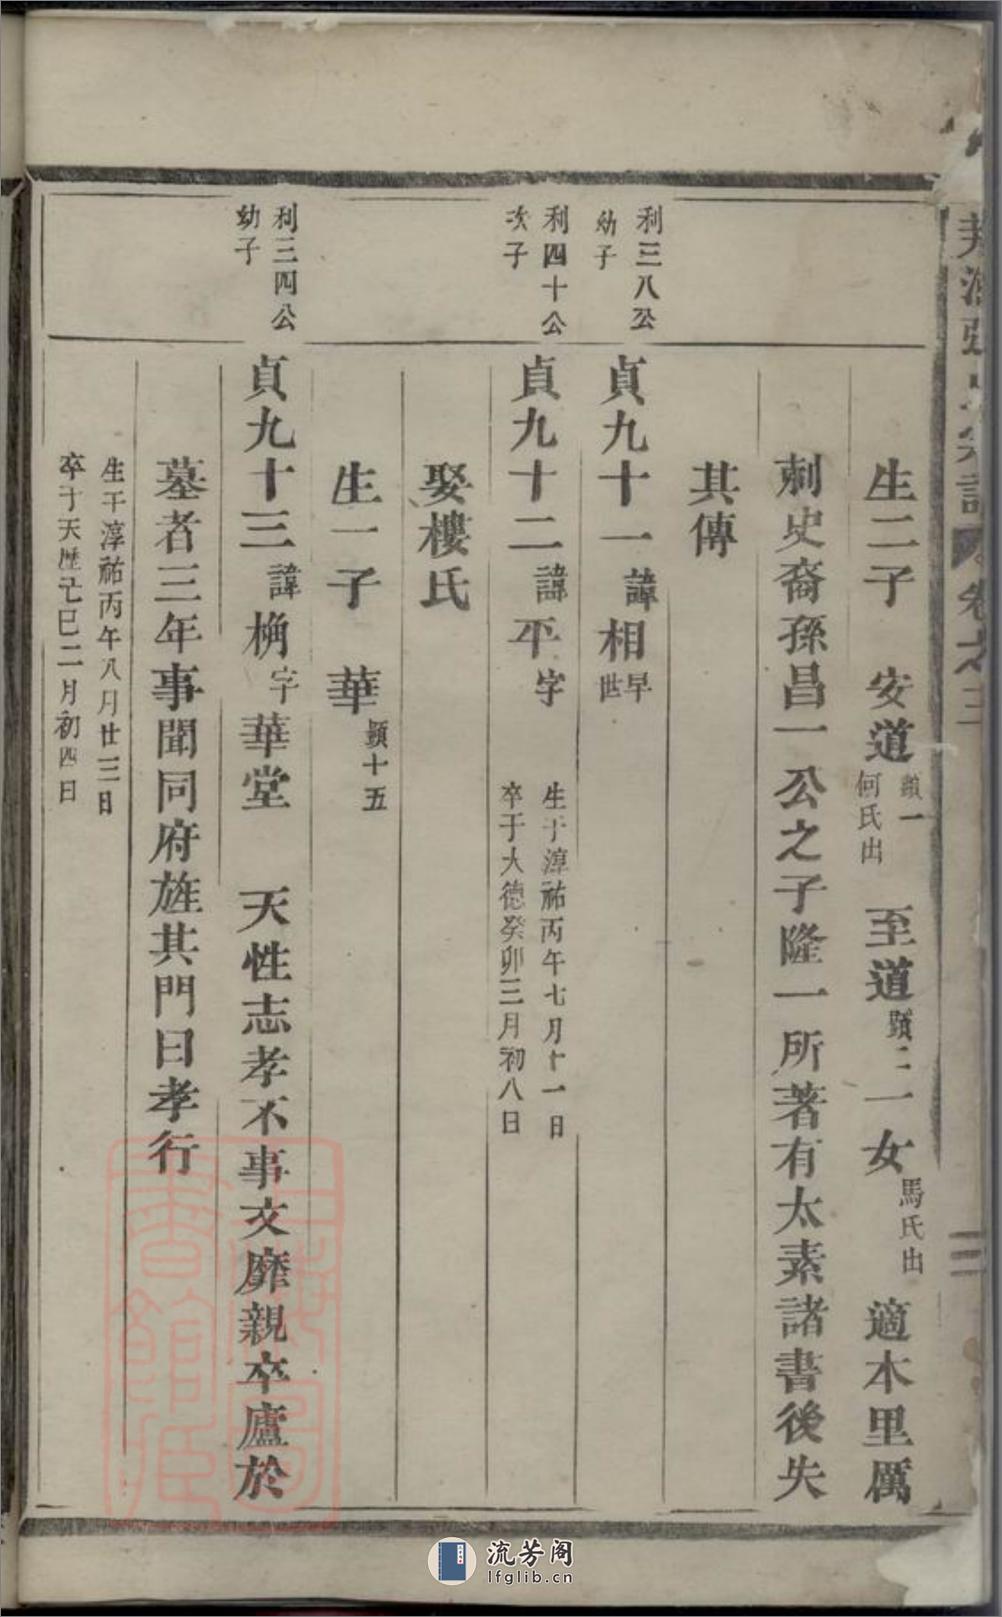 生二子 安道 顗一 何氏出 至道 顗二 一女 馬氏出 適本里厲
刺史裔孫昌一公之子隆一所著有太素諸書後失
其傳
利三八公
幼子
貞九十一 諱 相 早世
利四十公
次子
貞九十二 諱 平 字
生于淳祐丙午七月十一日
卒于大德癸卯三月初八日
娶樓氏
生一子 華 顗十五
利三四公
幼子
貞九十三 諱 桷 字 華堂 天性志孝不事文靡親卒廬於
墓者三年事聞同府旌其門曰孝行
生于淳祐丙午八月廿三日
卒于天歷己巳二月初四日
上海圖書館藏
流芳阁
lfglib.cn